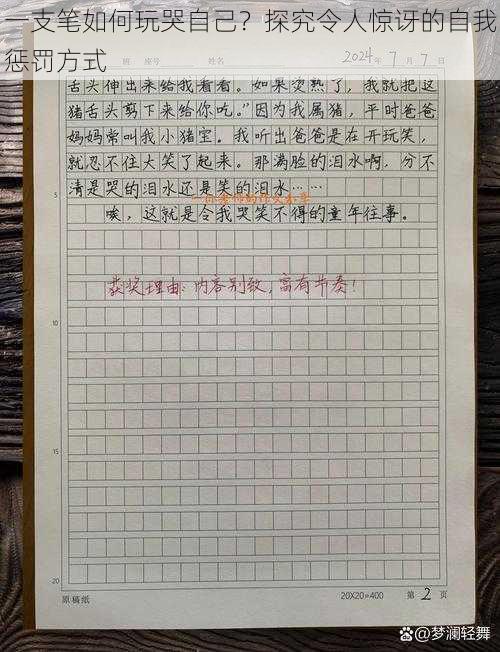 一支笔如何玩哭自己？探究令人惊讶的自我
惩罚方式
班 座号 姓名 2024年7月7日
舌头伸出来给我看看。如果烫熟了，我就把这
猪舌头剪下来给你吃。”因为我属猪，平时爸爸
妈妈常叫我小猪宝。我听出爸爸是在开玩笑，
就忍不住大笑了起来。那满脸的泪水啊，分不
清是哭的泪水还是笑的泪水……
5
唉，这就是令我哭笑不得的童年往事。
获奖理由：内容别致，富有节奏！
10
15
20
原稿纸 20X20=400 第2页
@梦澜轻舞